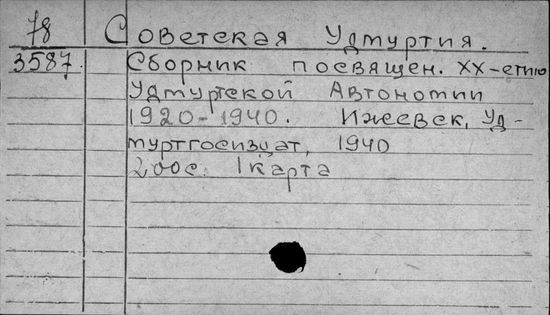 78 Советская Удмуртия.
3587. Сборник посвящен. XX-етию
Удмуртской Автономии
1920-1940. Ижевск, Уд-
муртгосиздат, 1940
200с. 1 карта